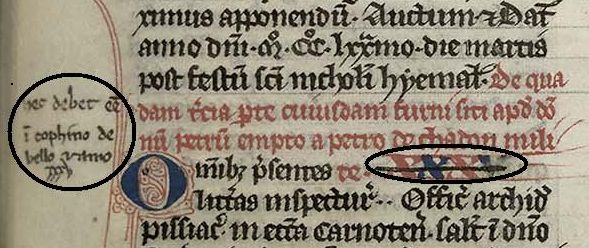 ximus apponendū. Actum ⁊ Dat̄
anno dn̄i · M̊ · CC̊ · lxx̊mo · die martis
post festū sc̄i nicholai hyemal̄. De qua
dam t̄cia p̄te cuiusdam furni siti apd̄ dō
nū petrū empto a petro de chadon mili
Omnib; p̄sentes te
litt̄as inspectur̄ · Offic̄ archid̄
pissiac̄ in ecc̄a carnoten̄. salt̄ ī dn̄o
hec debet ēē
ī cophino de
bello ramo